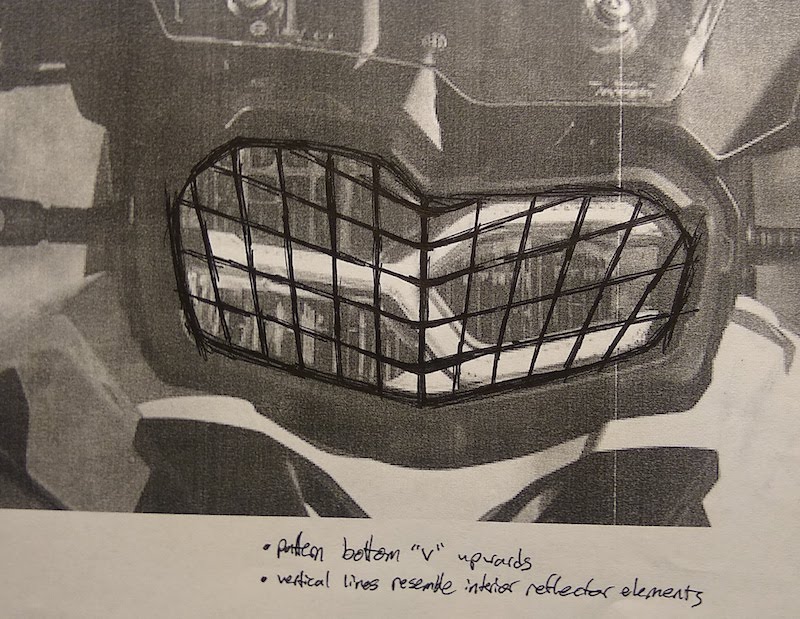 • pattern bottom "V" upwards
• vertical lines resemble interior reflector elements